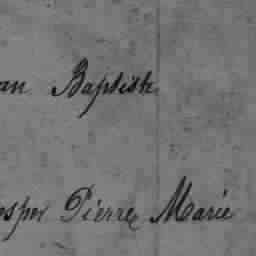 an Baptiste
osper Pierre Marie